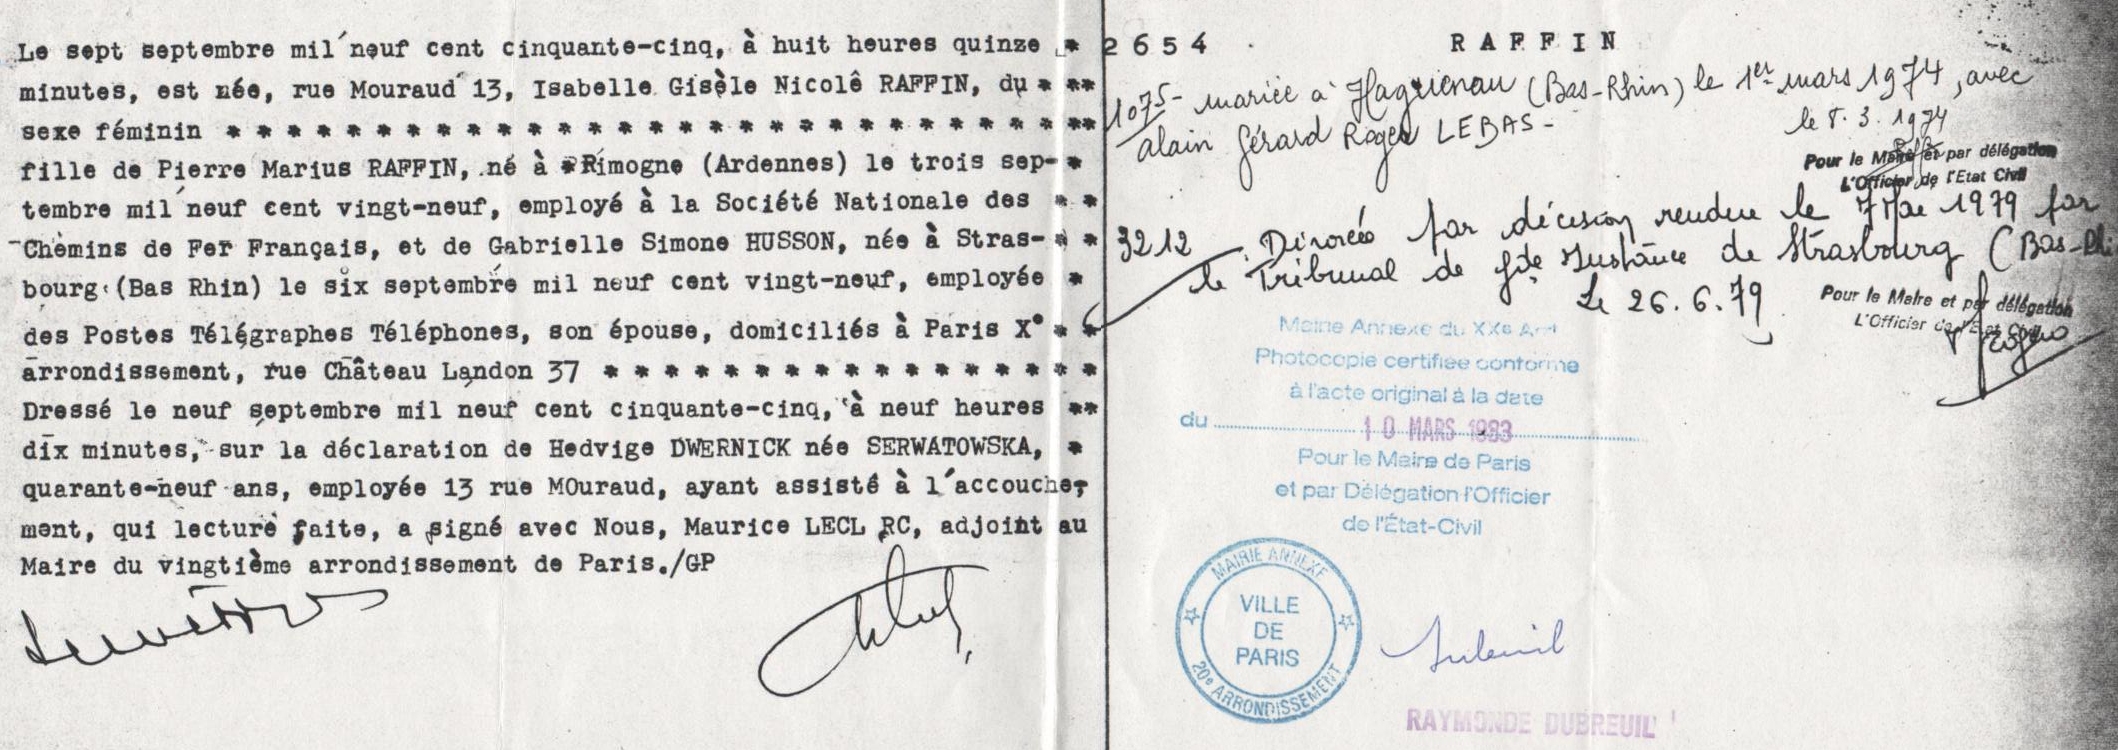 Le sept septembre mil neuf cent cinquante-cinq, à huit heures quinze *
minutes, est née, rue Mouraud 13, Isabelle Gisèle Nicolê RAFFIN, du * **
sexe féminin * * * * * * * * * * * * * * * * * * * * * * * * * * * * **
fille de Pierre Marius RAFFIN, né à *Rimogne (Ardennes) le trois sep- *
tembre mil neuf cent vingt-neuf, employé à la Société Nationale des * *
Chemins de Fer Français, et de Gabrielle Simone HUSSON, née à Stras- * *
bourg (Bas Rhin) le six septembre mil neuf cent vingt-neuf, employée *
des Postes Télégraphes Téléphones, son épouse, domiciliés à Paris X° * *
arrondissement, rue Château Landon 37 * * * * * * * * * * * * * * * * *
Dressé le neuf septembre mil neuf cent cinquante-cinq, à neuf heures **
dix minutes, sur la déclaration de Hedvige DWERNICK née SERWATOWSKA, *
quarante-neuf ans, employée 13 rue MOuraud, ayant assisté à l'accouche-
ment, qui lecture faite, a signé avec Nous, Maurice LECL RC, adjoint au
Maire du vingtième arrondissement de Paris./GP
2654 RAFFIN
1075- mariée à Haguenau (Bas-Rhin) le 1er mars 1974, avec
Alain Gérard Roger LEBAS-
le 8. 3. 1974
Pour le Maire et par délégation
L'Officier de l'Etat Civil
3212 Divorcée par décision rendue le 7 Mai 1979 par
le Tribunal de Gde Instance de Strasbourg (Bas-Rhi
Le 26.6.79
Pour le Maire et par délégation
L'Officier de l'Etat Civil
Mairie Annexe du XXe Arrt
Photocopie certifiée conforme
à l'acte original à la date
du 10 MARS 1983
Pour le Maire de Paris
et par Délégation l'Officier
de l'État-Civil
MAIRIE ANNEXE
VILLE
DE
PARIS
20e ARRONDISSEMENT
Dubreuil
RAYMONDE DUBREUIL